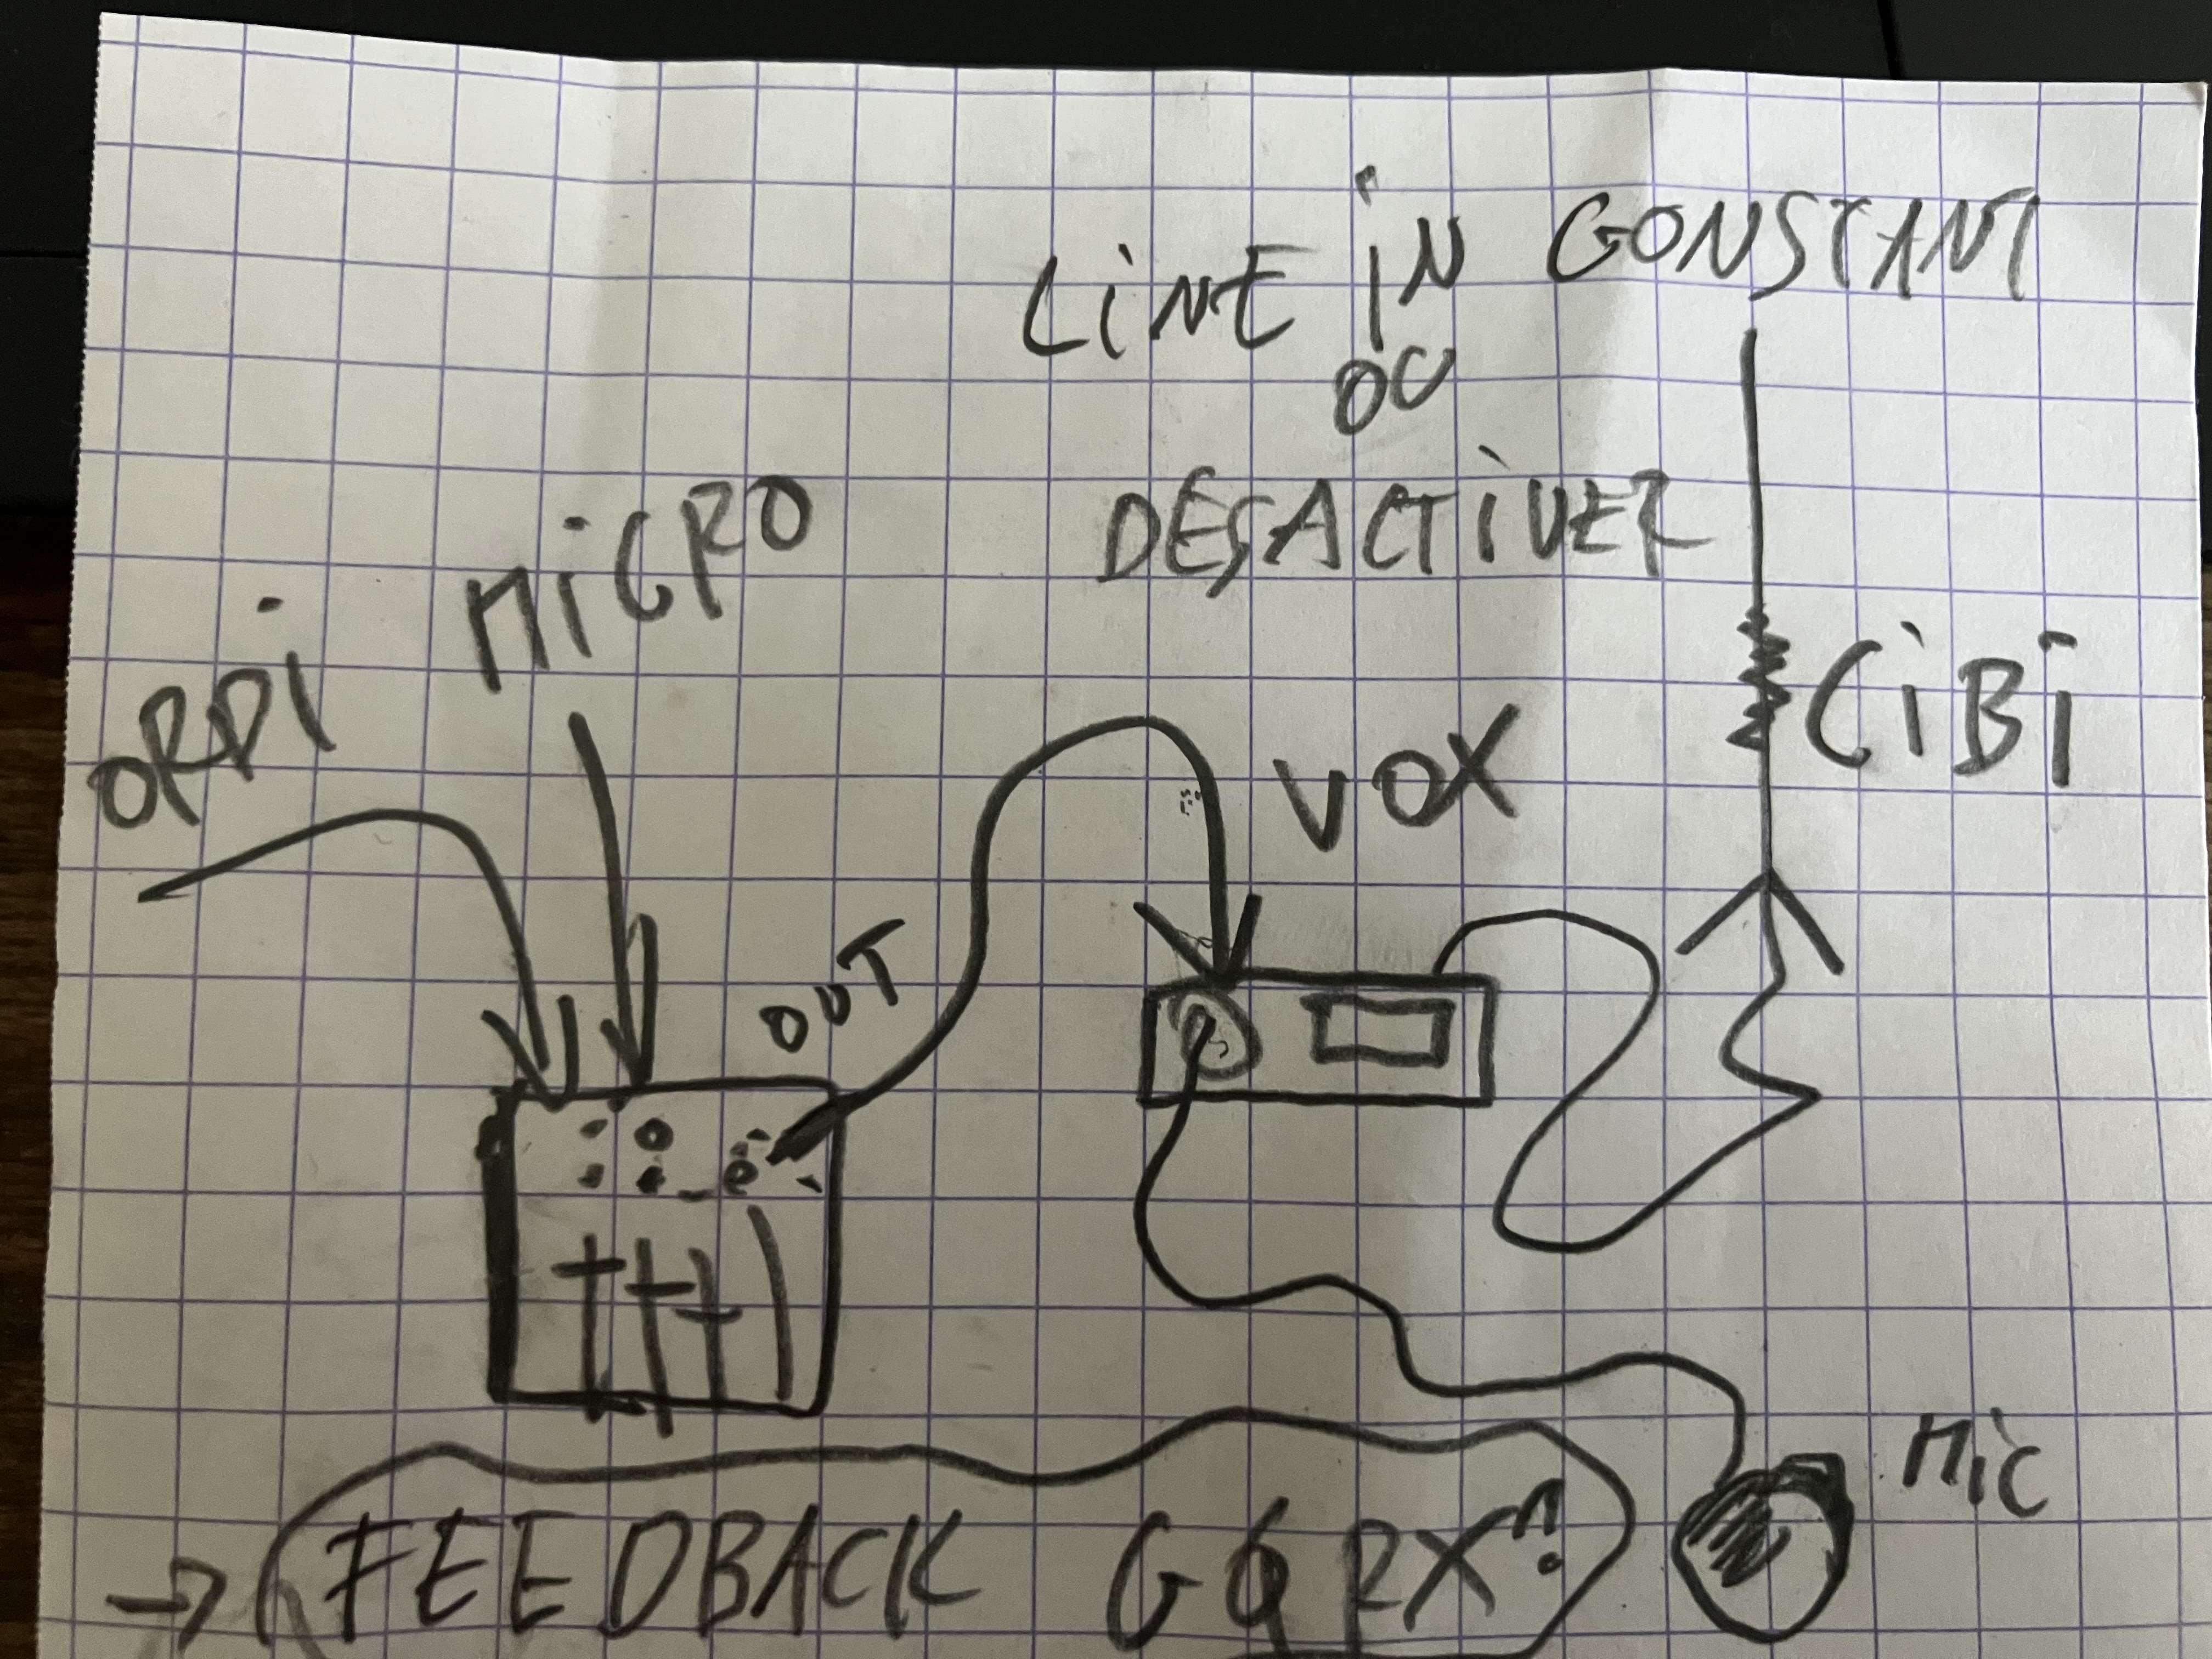 LiNE iN CONSTANT
OU
DESACTIVER
MiCRO
ORDi
CiBi
VOX
OUT
MiC
→ FEEDBACK GQRX?